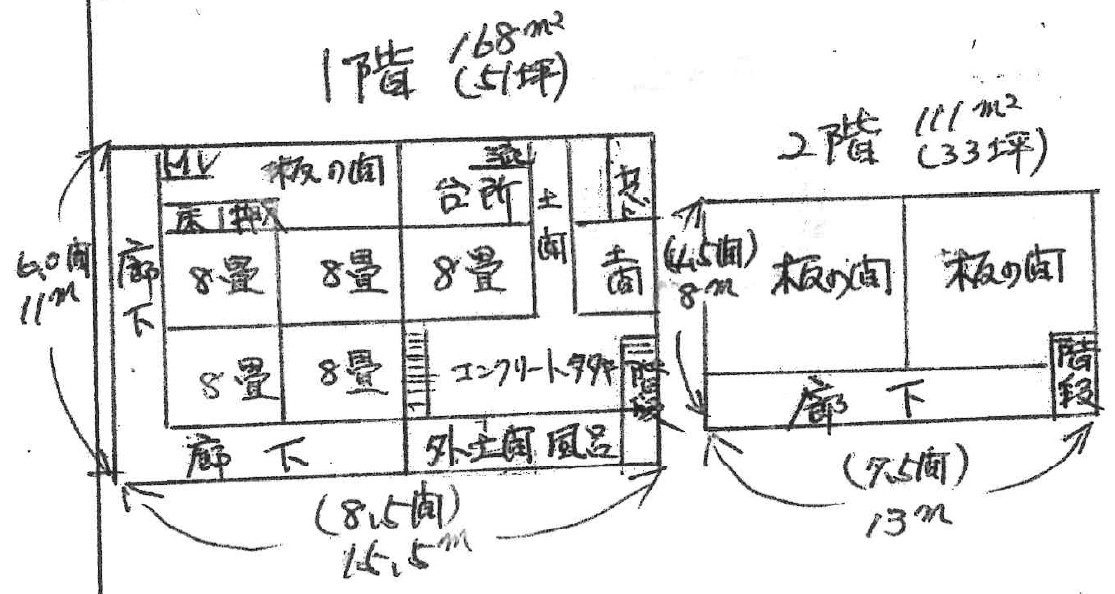 1階 168m²
(51坪)
トイレ
板の間
台所
土間
床
押入
廊下
8畳
8畳
8畳
土間
8畳
8畳
コンクリートタタキ
階段
廊下
外土間
風呂
6,0間
11m
(8,5間)
15,5m
2階 111m²
(33坪)
(4,5間)
8m
板の間
板の間
廊下
階段
(7,5間)
13m